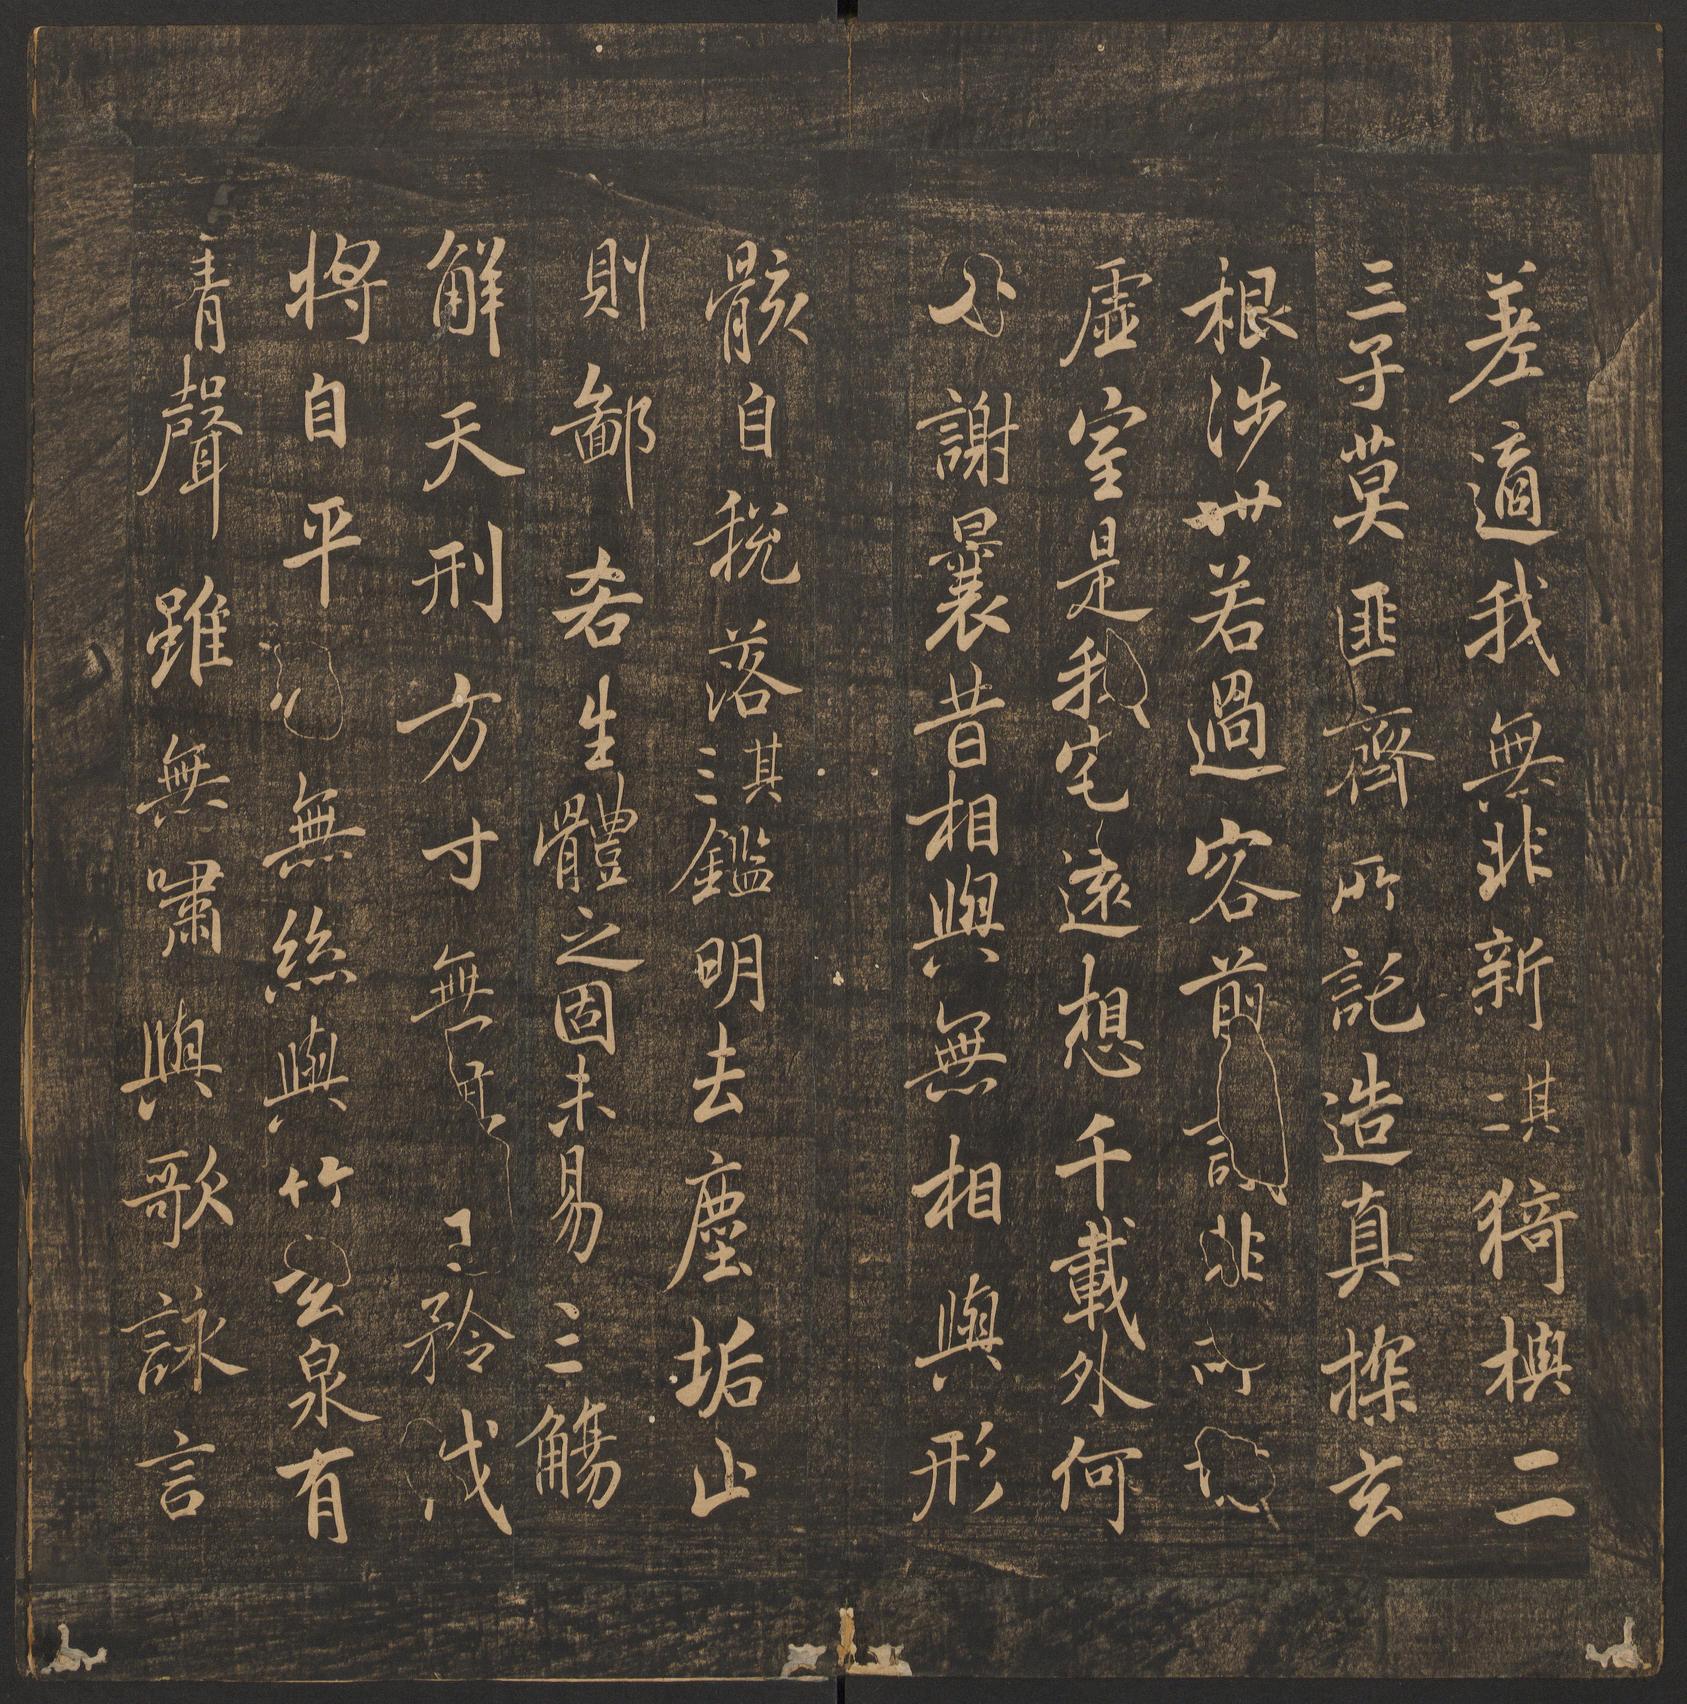 差適我無非新其二猗與二
三子莫匪齊所託造真探玄
根涉世若過客前非所
虛室是我宅遠想千載外何
謝曩昔相與無相與形
骸自稅落其三鑑明去塵垢止
則鄙吝生體之固未易三觴
解天刑方寸無矜伐
將自平無絲與竹玄泉有
清聲雖無嘯與歌詠言